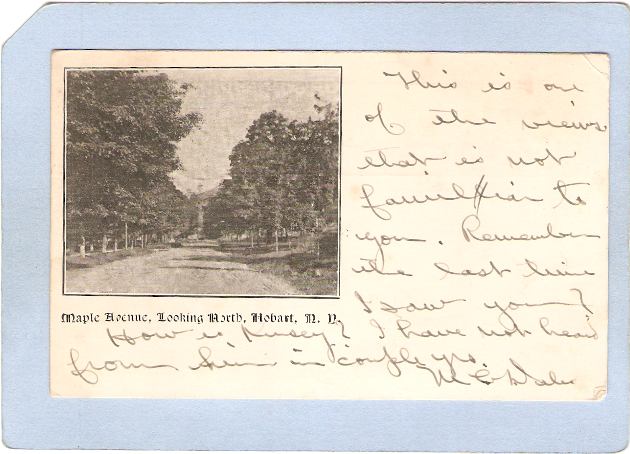 This is one
of the views
that is not
familiar to
you. Remember
the last time
I saw you?
Maple Avenue, Looking North, Hobart, N. Y.
How is Pusey? I have not heard
from him in couple yrs.
M C